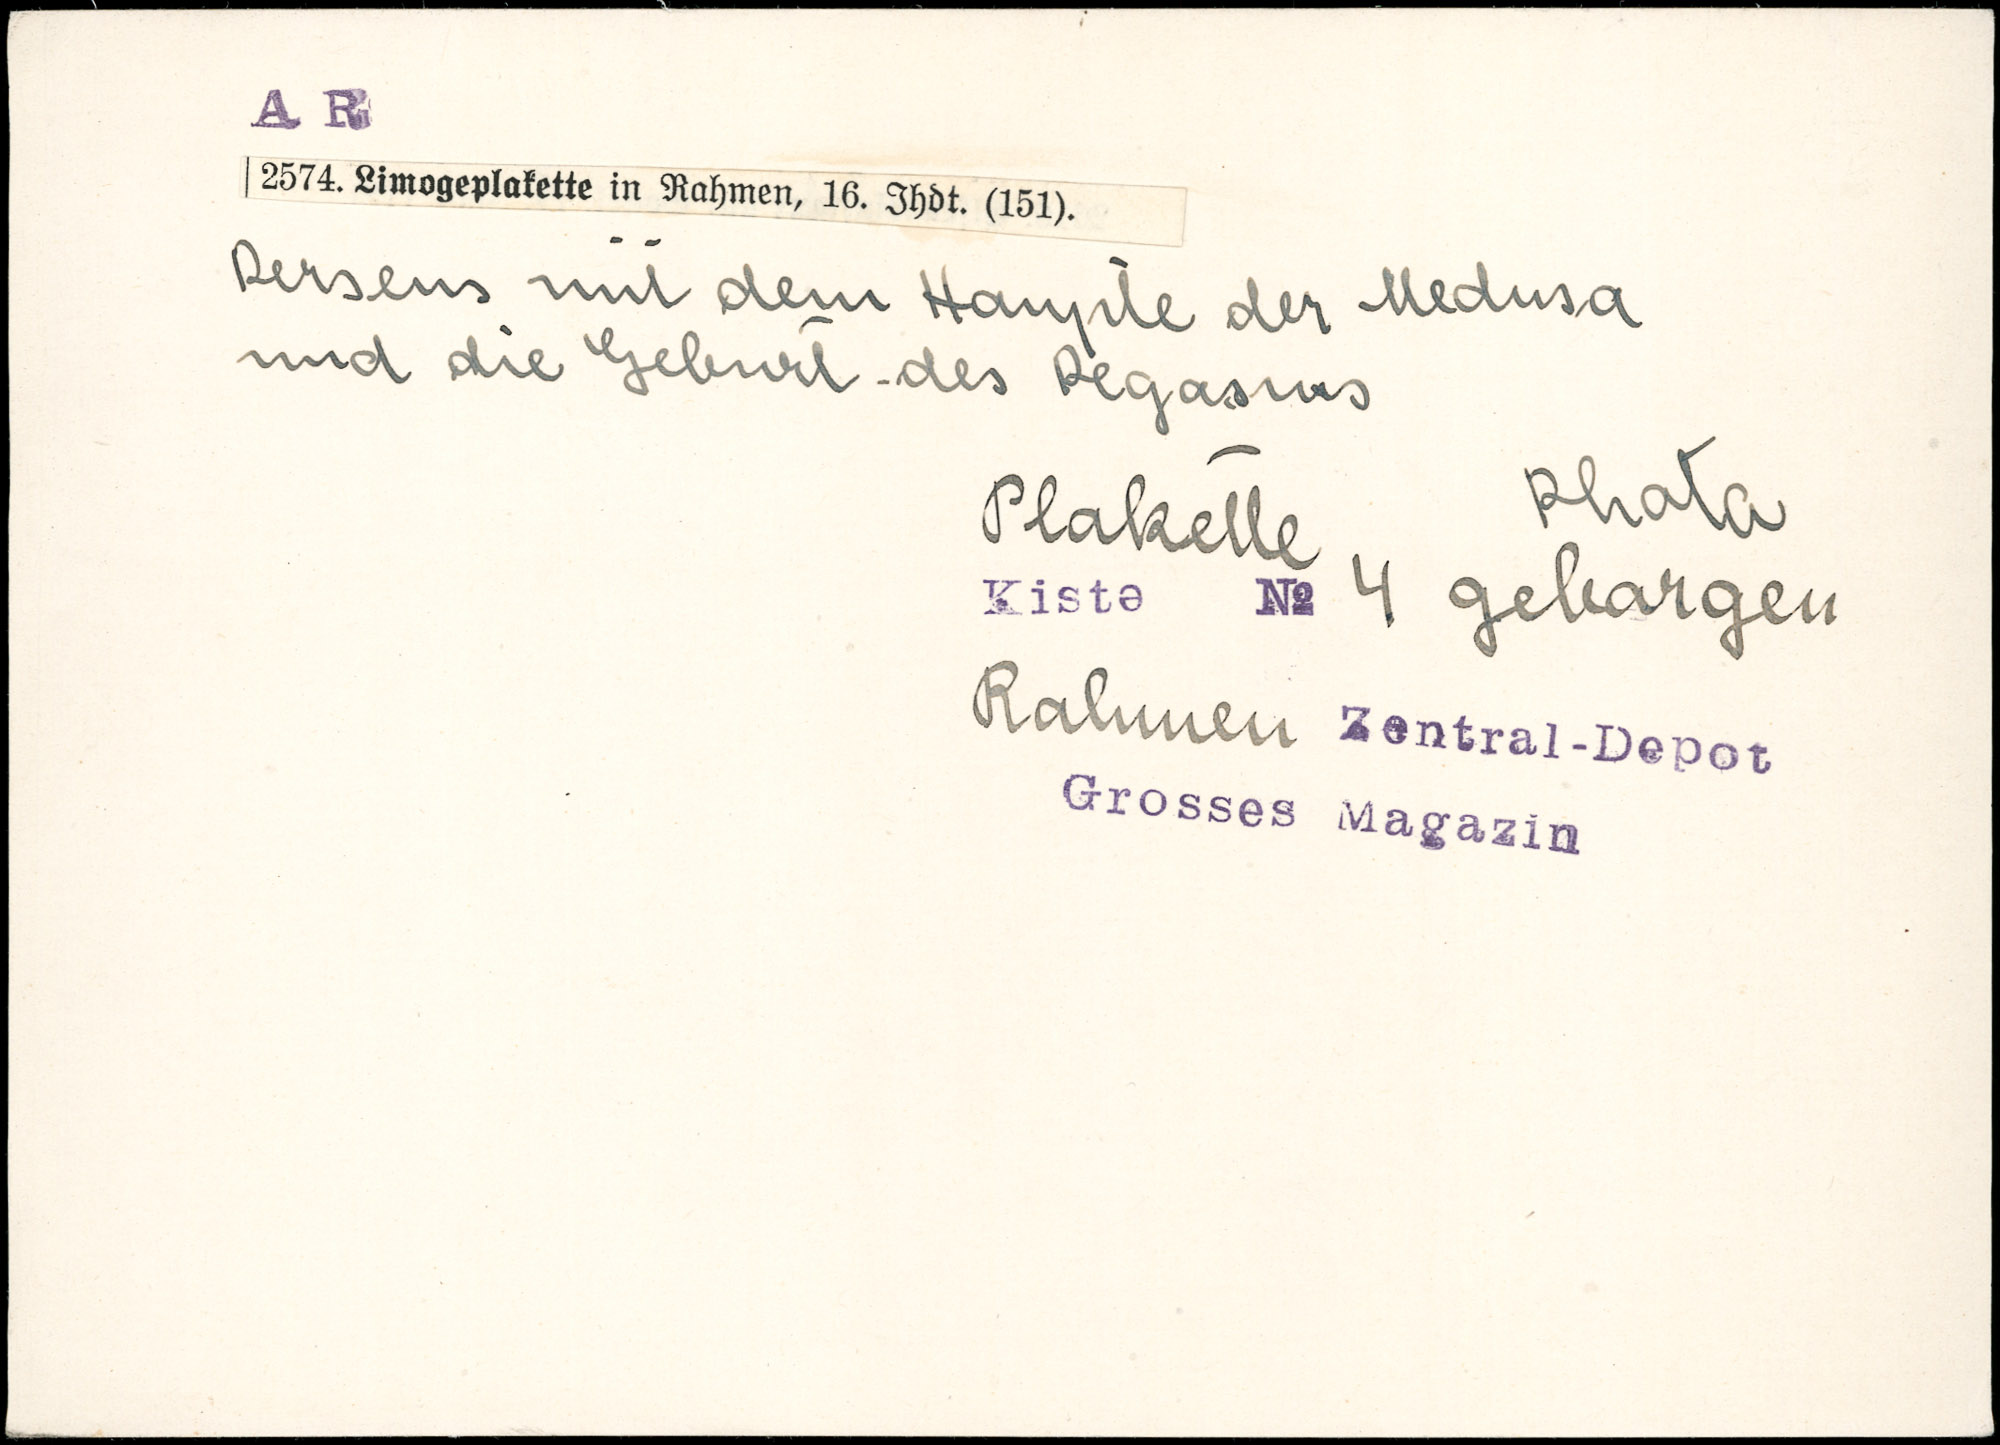 A R
2574. Limogeplakette in Rahmen, 16. Jhdt. (151).
Perseus mit dem Haupte der Medusa
und die Geburt des Pegasus
Photo
Plakette
Kiste № 4 geborgen
Rahmen Zentral-Depot
Grosses Magazin